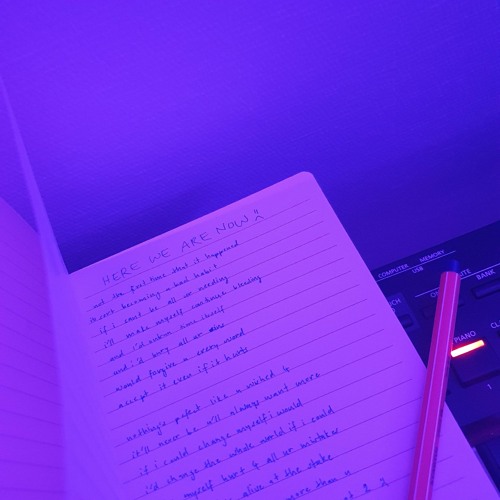 HERE WE ARE NOW !!
not the first time that it happened
recent becoming a bad habit
if i cant be all ur needing
i'll make myself continue bleeding
and i'd
and i'd bury all ur
would forgive u every word
accept it even if it hurts
nothing's perfect like u wished 4
it'll never be u'll always want more
if i could change myself i would
i'd change the whole world if i could
myself hurt 4 all ur mistakes
alive at the stake
more than
COMPUTER
MEMORY
USB
BANK
PIANO